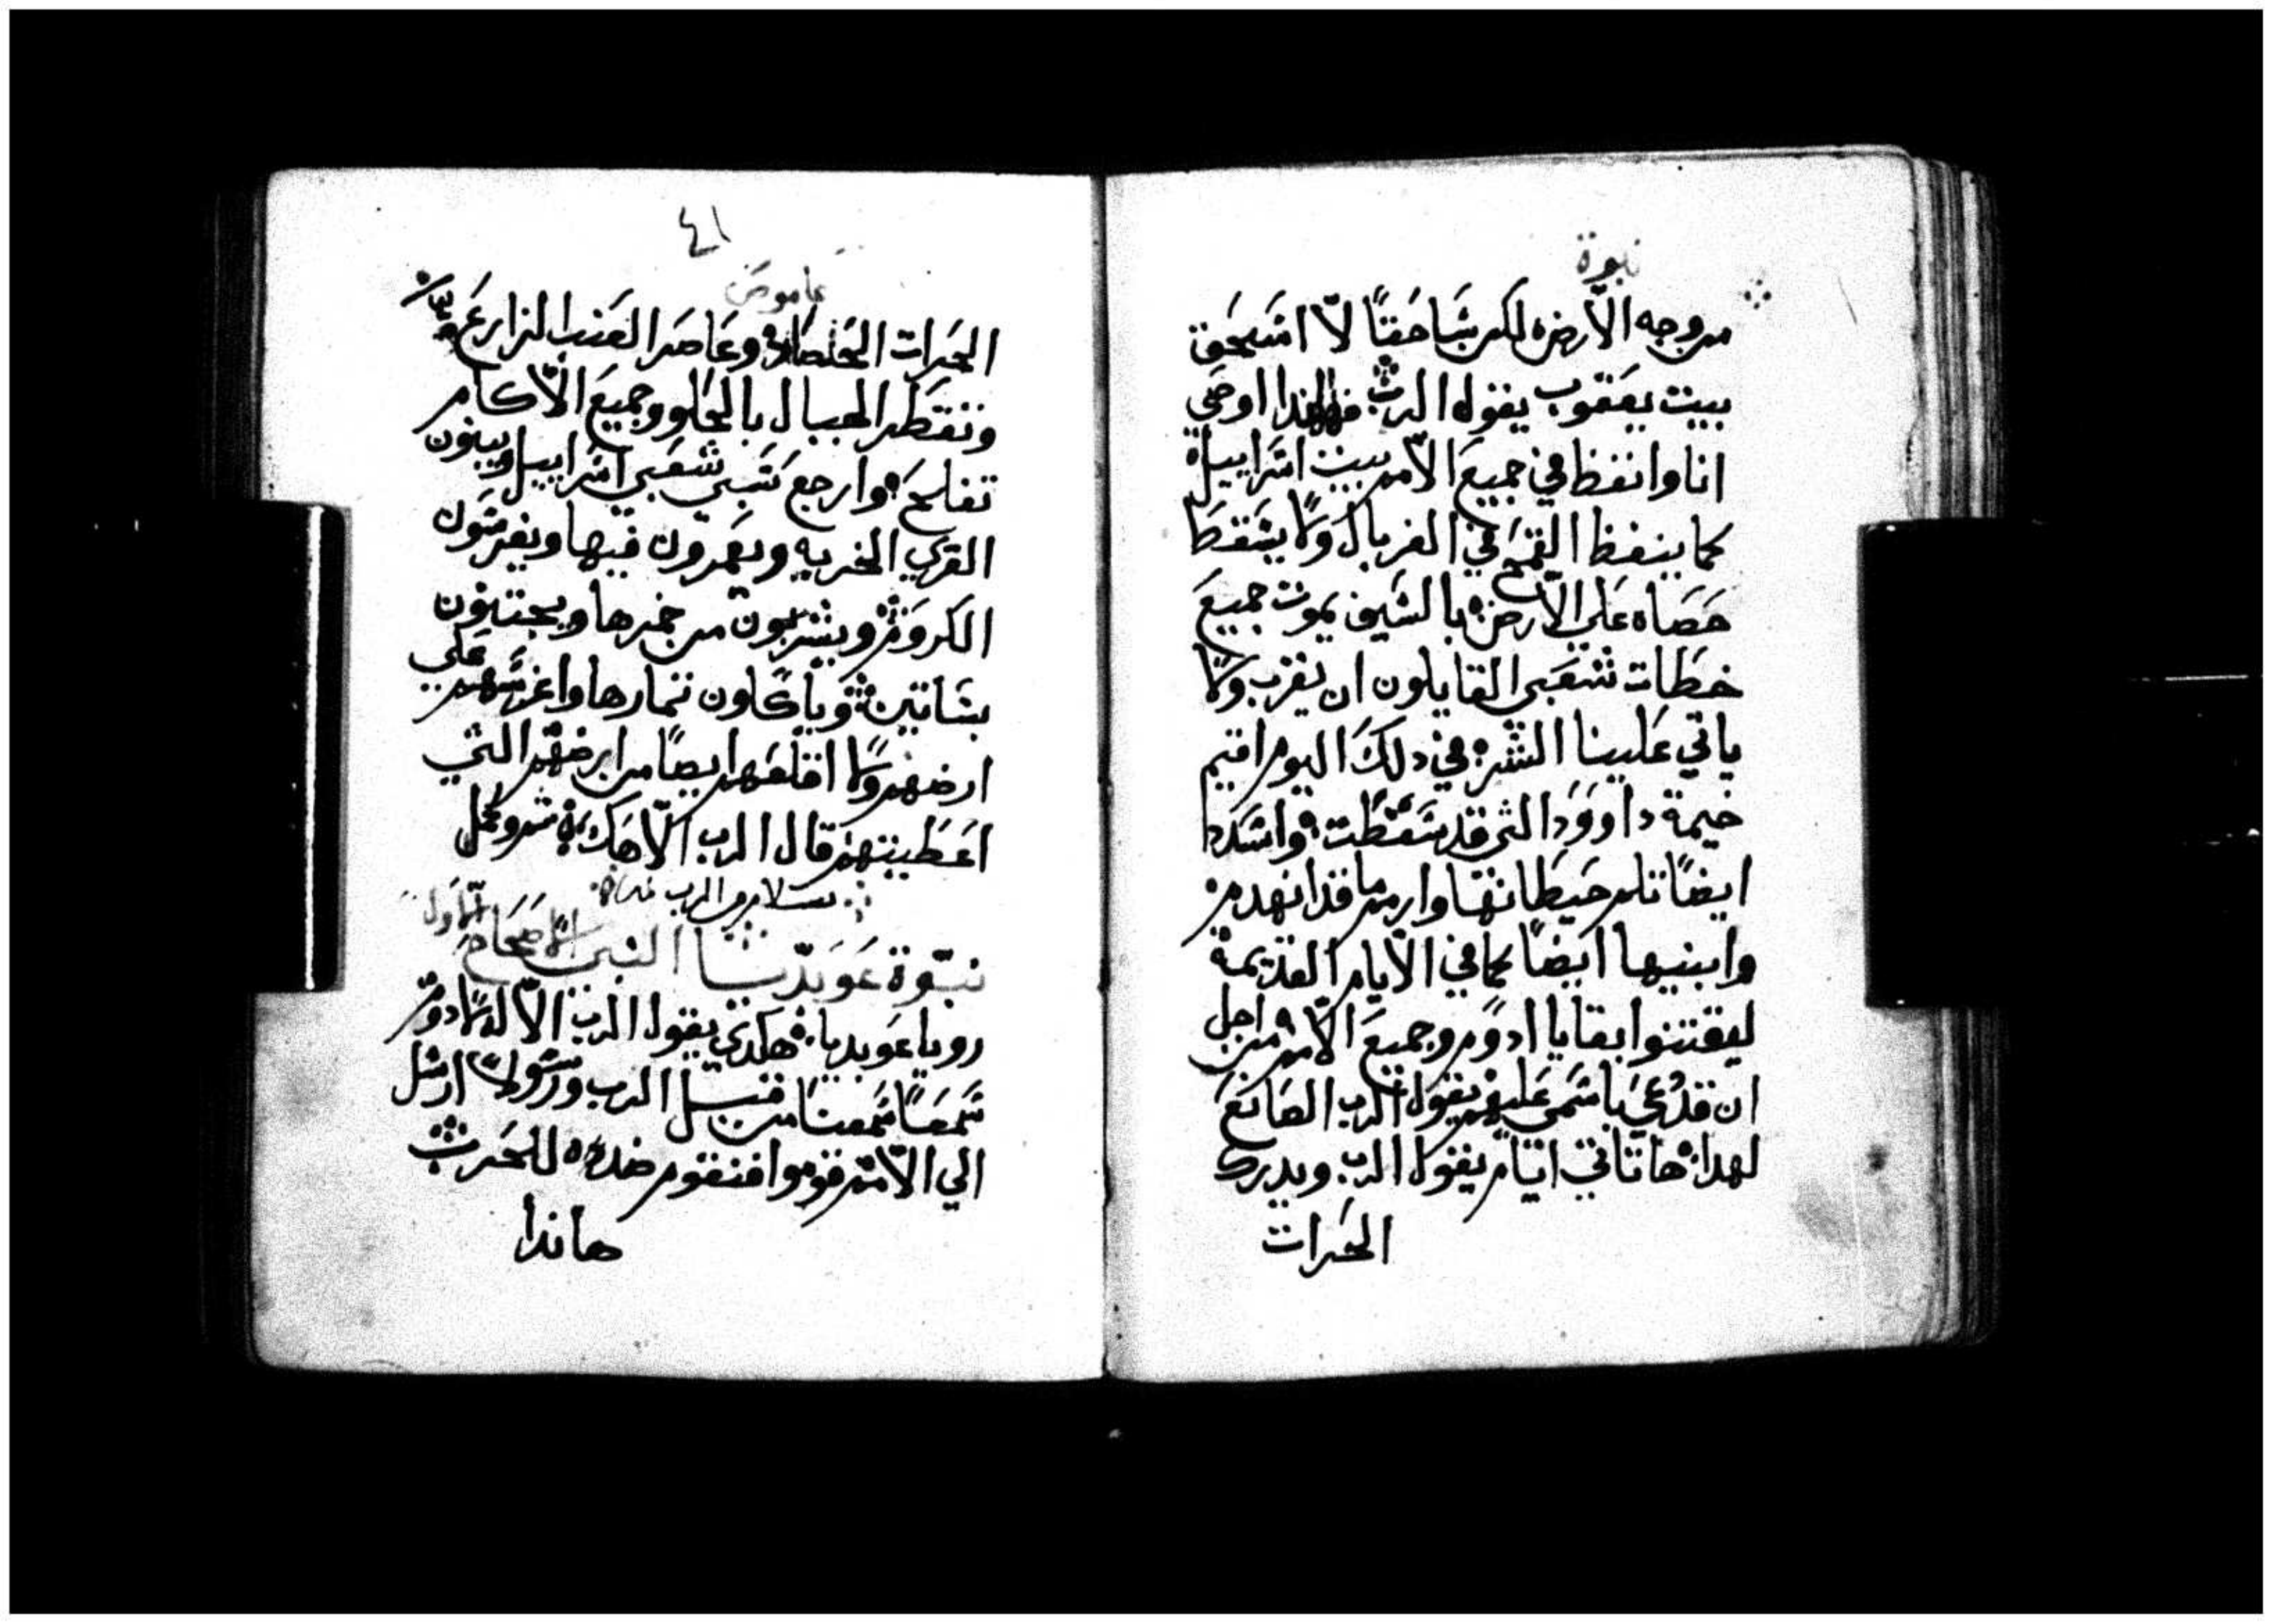 نبوة
من وجه الارض لكن ساحقًا لا اسحق
بيت يعقوب يقول الرب فهاهندا اوصي
انا وانفظ في جميع الامم بيت اسراييل
كما ينفظ القمح في الغربال ولا يسقط
حصاه علي الارض بالسيف يموت جميع
خطات شعبي القايلون ان يقرب ولا
ياتي علينا الشر في دلك اليوم اقيم
خيمة داوود التي قد سقطت واسدد
ايضًا تلم حيطانها وارمم ما قد انهدم
وابنيها ايضًا كما في الايام القديمة
ليقتنوا بقايا ادوم وجميع الامم من اجل
ان قد دُعي باسمي عليهم يقول الرب الصانع
لهدا ها تاتي ايام يقول الرب ويدرك
الحرات
٤١
عاموص
الحرات الحصاد وعاصر العنب الزارع
وتقطر الجبال بالحلو وجميع الاكام
تفلح وارجع سبي شعبي اسراييل ويبنون
القري الخربه ويعمرون فيها ويغرسون
الكروم ويشربون من خمرها ويجتنون
بساتين وياكلون تمارها واغرسهم علي
ارضهم ولا اقلعهم ايضًا من ارضهم التي
اعطيتهم قال الرب الاهك تم وكمل
بسلام من الرب
نبوة عوبديا النبي الاصحاح الاول
رويا عوبديا هكدي يقول الرب الاله لادوم
سمعًا سمعنا من قبل الرب ورسولًا ارسل
الي الامم قوموا فنقوم ضده للحرب
هاندا